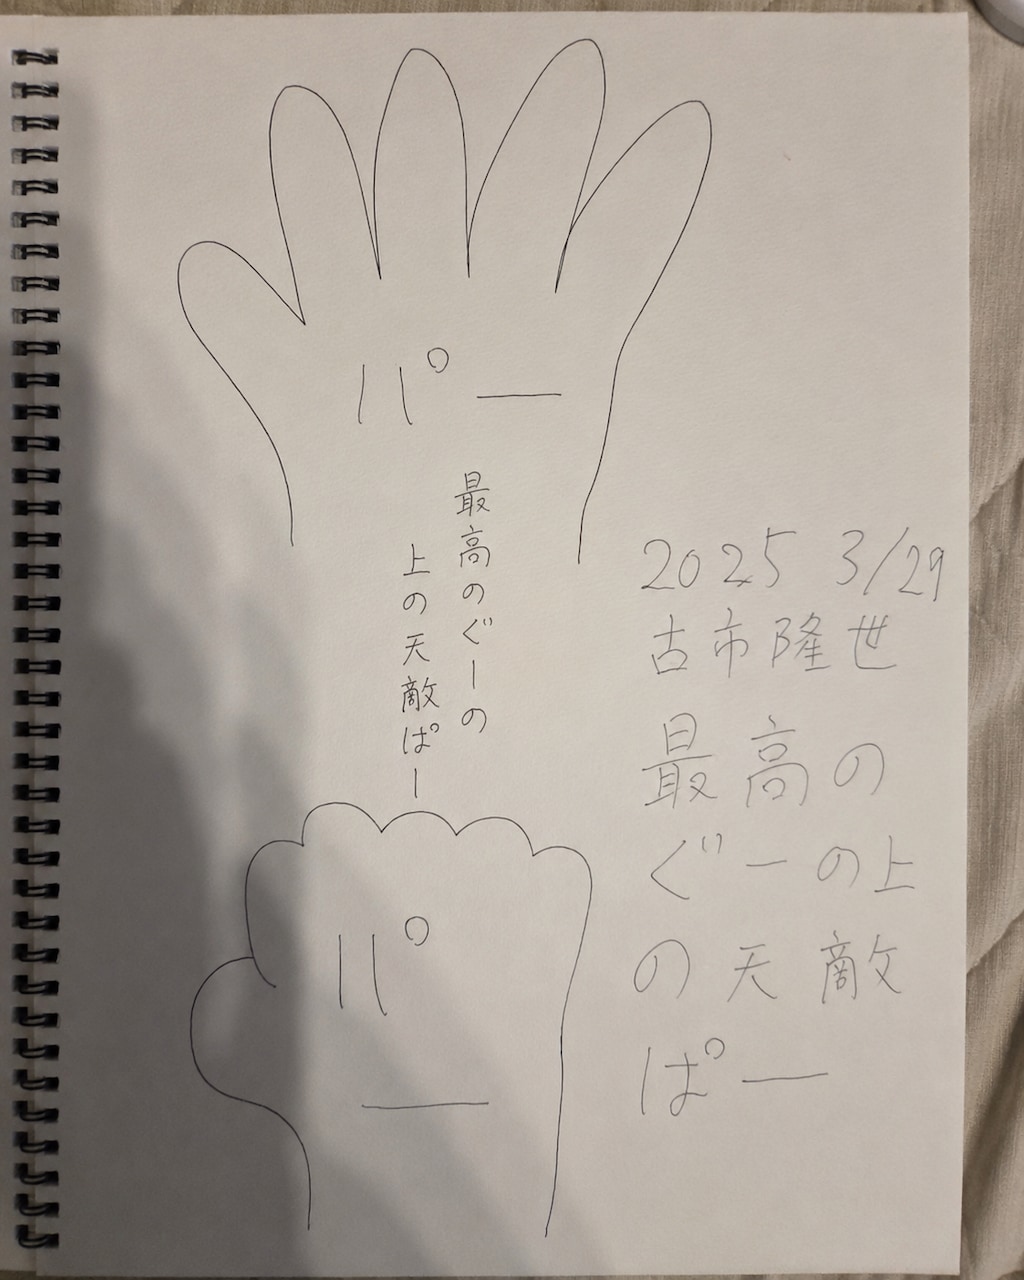 パー
最高のぐーの
上の天敵ぱー
パ
ー
2025 3/29
古市隆世
最高の
ぐーの上
の天敵
ぱー